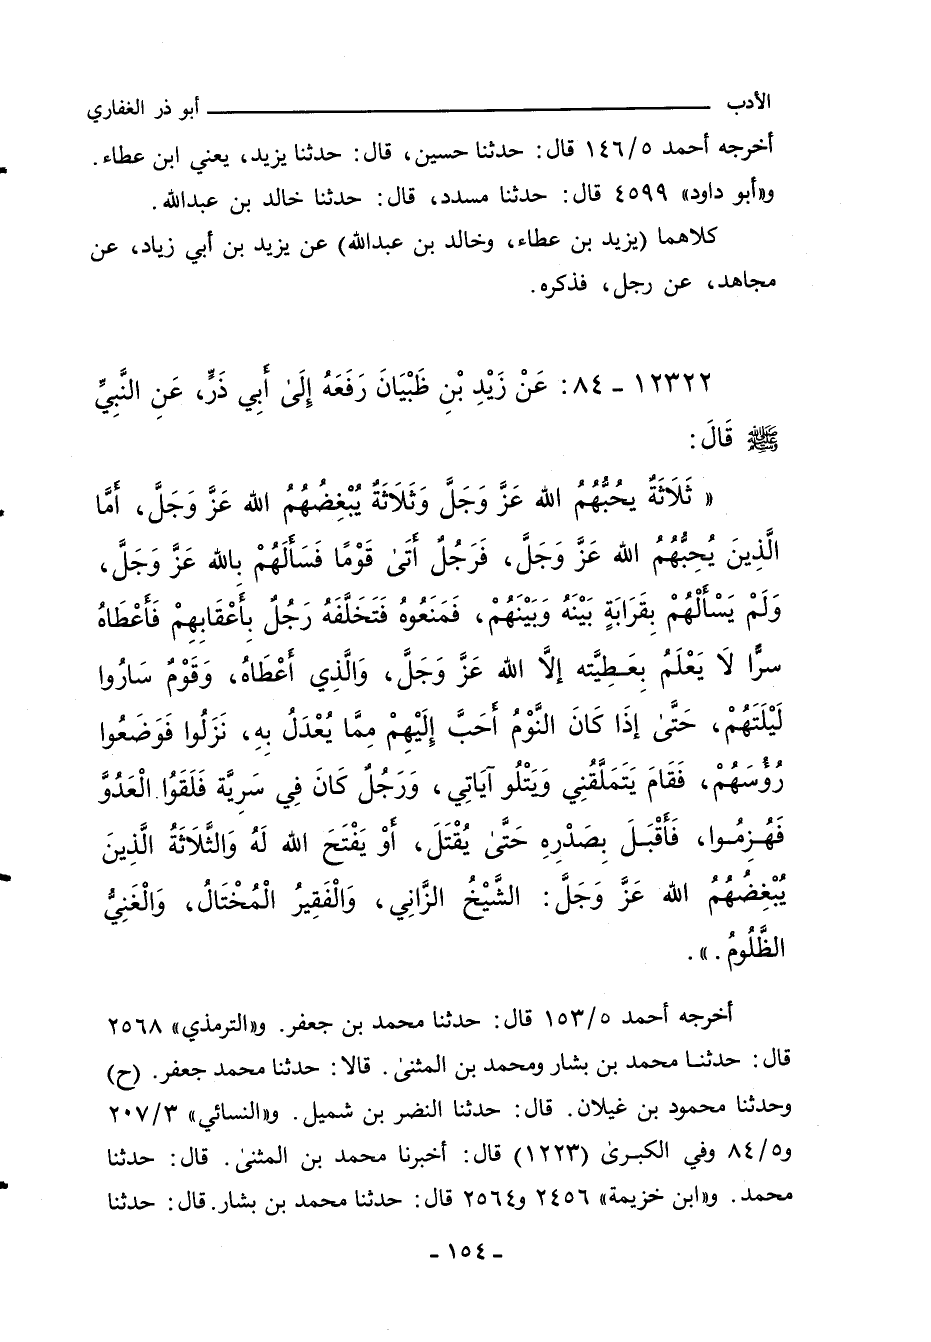 الأدب ـــــــــــــــــ أبو ذر الغفاري
أخرجه أحمد ١٤٦/٥ قال: حدثنا حسين، قال: حدثنا يزيد، يعني ابن عطاء.
و«أبو داود» ٤٥٩٩ قال: حدثنا مسدد، قال: حدثنا خالد بن عبدالله.
كلاهما (يزيد بن عطاء، وخالد بن عبدالله) عن يزيد بن أبي زياد، عن
مجاهد، عن رجل، فذكره.
١٢٣٢٢ ـ ٨٤: عَنْ زَيْدِ بْنِ ظَبْيَانَ رَفَعَهُ إِلَىٰ أَبِي ذَرٍّ، عَنِ النَّبِيِّ
ﷺ قَالَ:
« ثَلَاثَةٌ يُحِبُّهُمُ الله عَزَّ وَجَلَّ وَثَلَاثَةٌ يُبْغِضُهُمُ الله عَزَّ وَجَلَّ، أَمَّا
الَّذِينَ يُحِبُّهُمُ الله عَزَّ وَجَلَّ، فَرَجُلٌ أَتَىٰ قَوْمًا فَسَأَلَهُمْ بِالله عَزَّ وَجَلَّ،
وَلَمْ يَسْأَلْهُمْ بِقَرَابَةٍ بَيْنَهُ وَبَيْنَهُمْ، فَمَنَعُوهُ فَتَخَلَّفَهُ رَجُلٌ بِأَعْقَابِهِمْ فَأَعْطَاهُ
سرًّا لَا يَعْلَمُ بِعَطِيَّته إلَّا الله عَزَّ وَجَلَّ، وَالَّذِي أَعْطَاهُ، وَقَوْمٌ سَارُوا
لَيْلَتَهُمْ، حَتَّىٰ إذَا كَانَ النَّوْمُ أَحَبَّ إِلَيْهِمْ مِمَّا يُعْدَلُ بِهِ، نَزَلُوا فَوَضَعُوا
رُؤُسَهُمْ، فَقَامَ يَتَمَلَّقُنِي وَيَتْلُو آيَاتِي، وَرَجُلٌ كَانَ فِي سَرِيَّة فَلَقَوُا الْعَدُوَّ
فَهُزِمُوا، فَأَقْبَلَ بِصَدْرِهِ حَتَّىٰ يُقْتَلَ، أَوْ يَفْتَحَ الله لَهُ وَالثَّلَاثَةُ الَّذِينَ
يُبْغِضُهُمُ الله عَزَّ وَجَلَّ: الشَّيْخُ الزَّانِي، وَالْفَقِيرُ الْمُخْتَالُ، وَالْغَنِيُّ
الظَّلُومُ.».
أخرجه أحمد ١٥٣/٥ قال: حدثنا محمد بن جعفر. و«الترمذي» ٢٥٦٨
قال: حدثنا محمد بن بشار ومحمد بن المثنىٰ. قالا: حدثنا محمد جعفر. (ح)
وحدثنا محمود بن غيلان. قال: حدثنا النضر بن شميل. و«النسائي» ٢٠٧/٣
و٨٤/٥ وفي الكبرىٰ (١٢٢٣) قال: أخبرنا محمد بن المثنىٰ. قال: حدثنا
محمد. و«ابن خزيمة» ٢٤٥٦ و٢٥٦٤ قال: حدثنا محمد بن بشار. قال: حدثنا
ـ ١٥٤ ـ